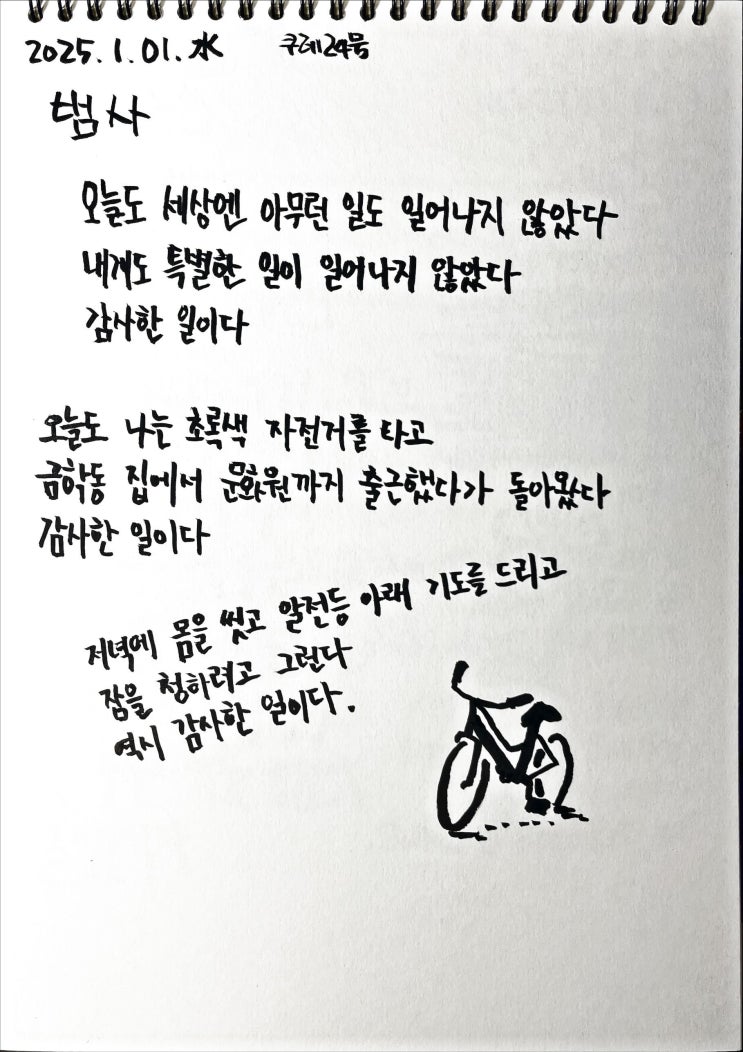 2025.1.01.水 쿠레24욱
범사
오늘도 세상엔 아무런 일도 일어나지 않았다
내게도 특별한 일이 일어나지 않았다
감사한 일이다
오늘도 나는 초록색 자전거를 타고
금학동 집에서 문화원까지 출근했다가 돌아왔다
감사한 일이다
저녁에 몸을 씻고 알전등 아래 기도를 드리고
잠을 청하려고 그런다
역시 감사한 일이다.